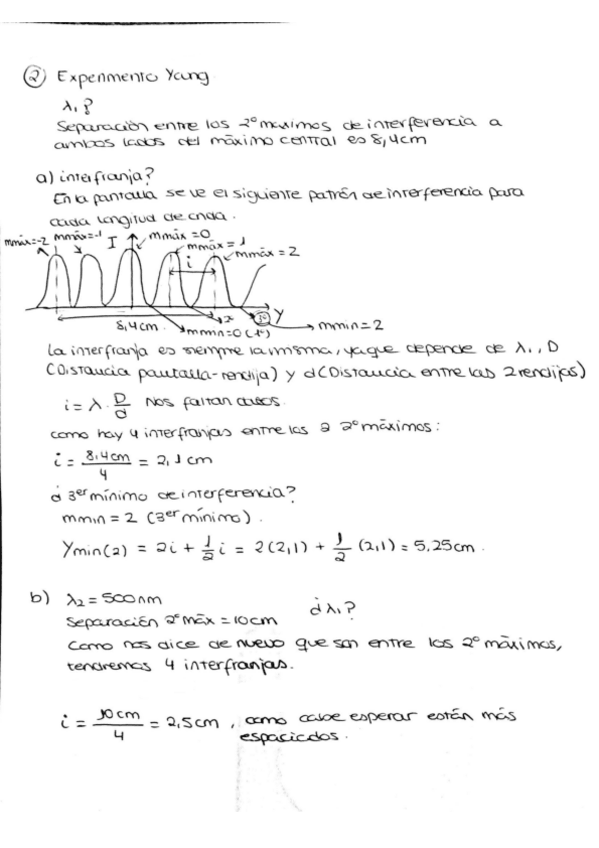 ② Experimento Young
λ₁?
Separación entre los 2º maximos de interferencia a
ambos lados del máximo central es 8,4cm
a) interfranja?
En la pantalla se ve el siguiente patrón de interferencia para
cada longitud de onda.
mmáx=-2 mmáx=-1 I mmáx=0
mmáx=1
i mmáx=2
8,4cm x Y
mmin=0(1º) mmin=2
La interfranja es siempre la misma, ya que depende de λ₁, D
(Distancia pantalla-rendija) y d(Distancia entre las 2 rendijas)
i = λ · D/d Nos faltan datos.
como hay 4 interfranjas entre los 2 2º máximos:
i = 8,4cm/4 = 2,1 cm
d 3er mínimo de interferencia?
mmin = 2 (3er mínimo).
Ymin(2) = 2i + 1/2 i = 2(2,1) + 1/2 (2,1) = 5,25cm.
b) λ₂ = 500nm
d λ₁?
Separación 2º máx = 10cm
Como nos dice de nuevo que son entre los 2º máximos,
tendremos 4 interfranjas.
i = 10cm/4 = 2,5cm, como cabe esperar están más
espaciados.